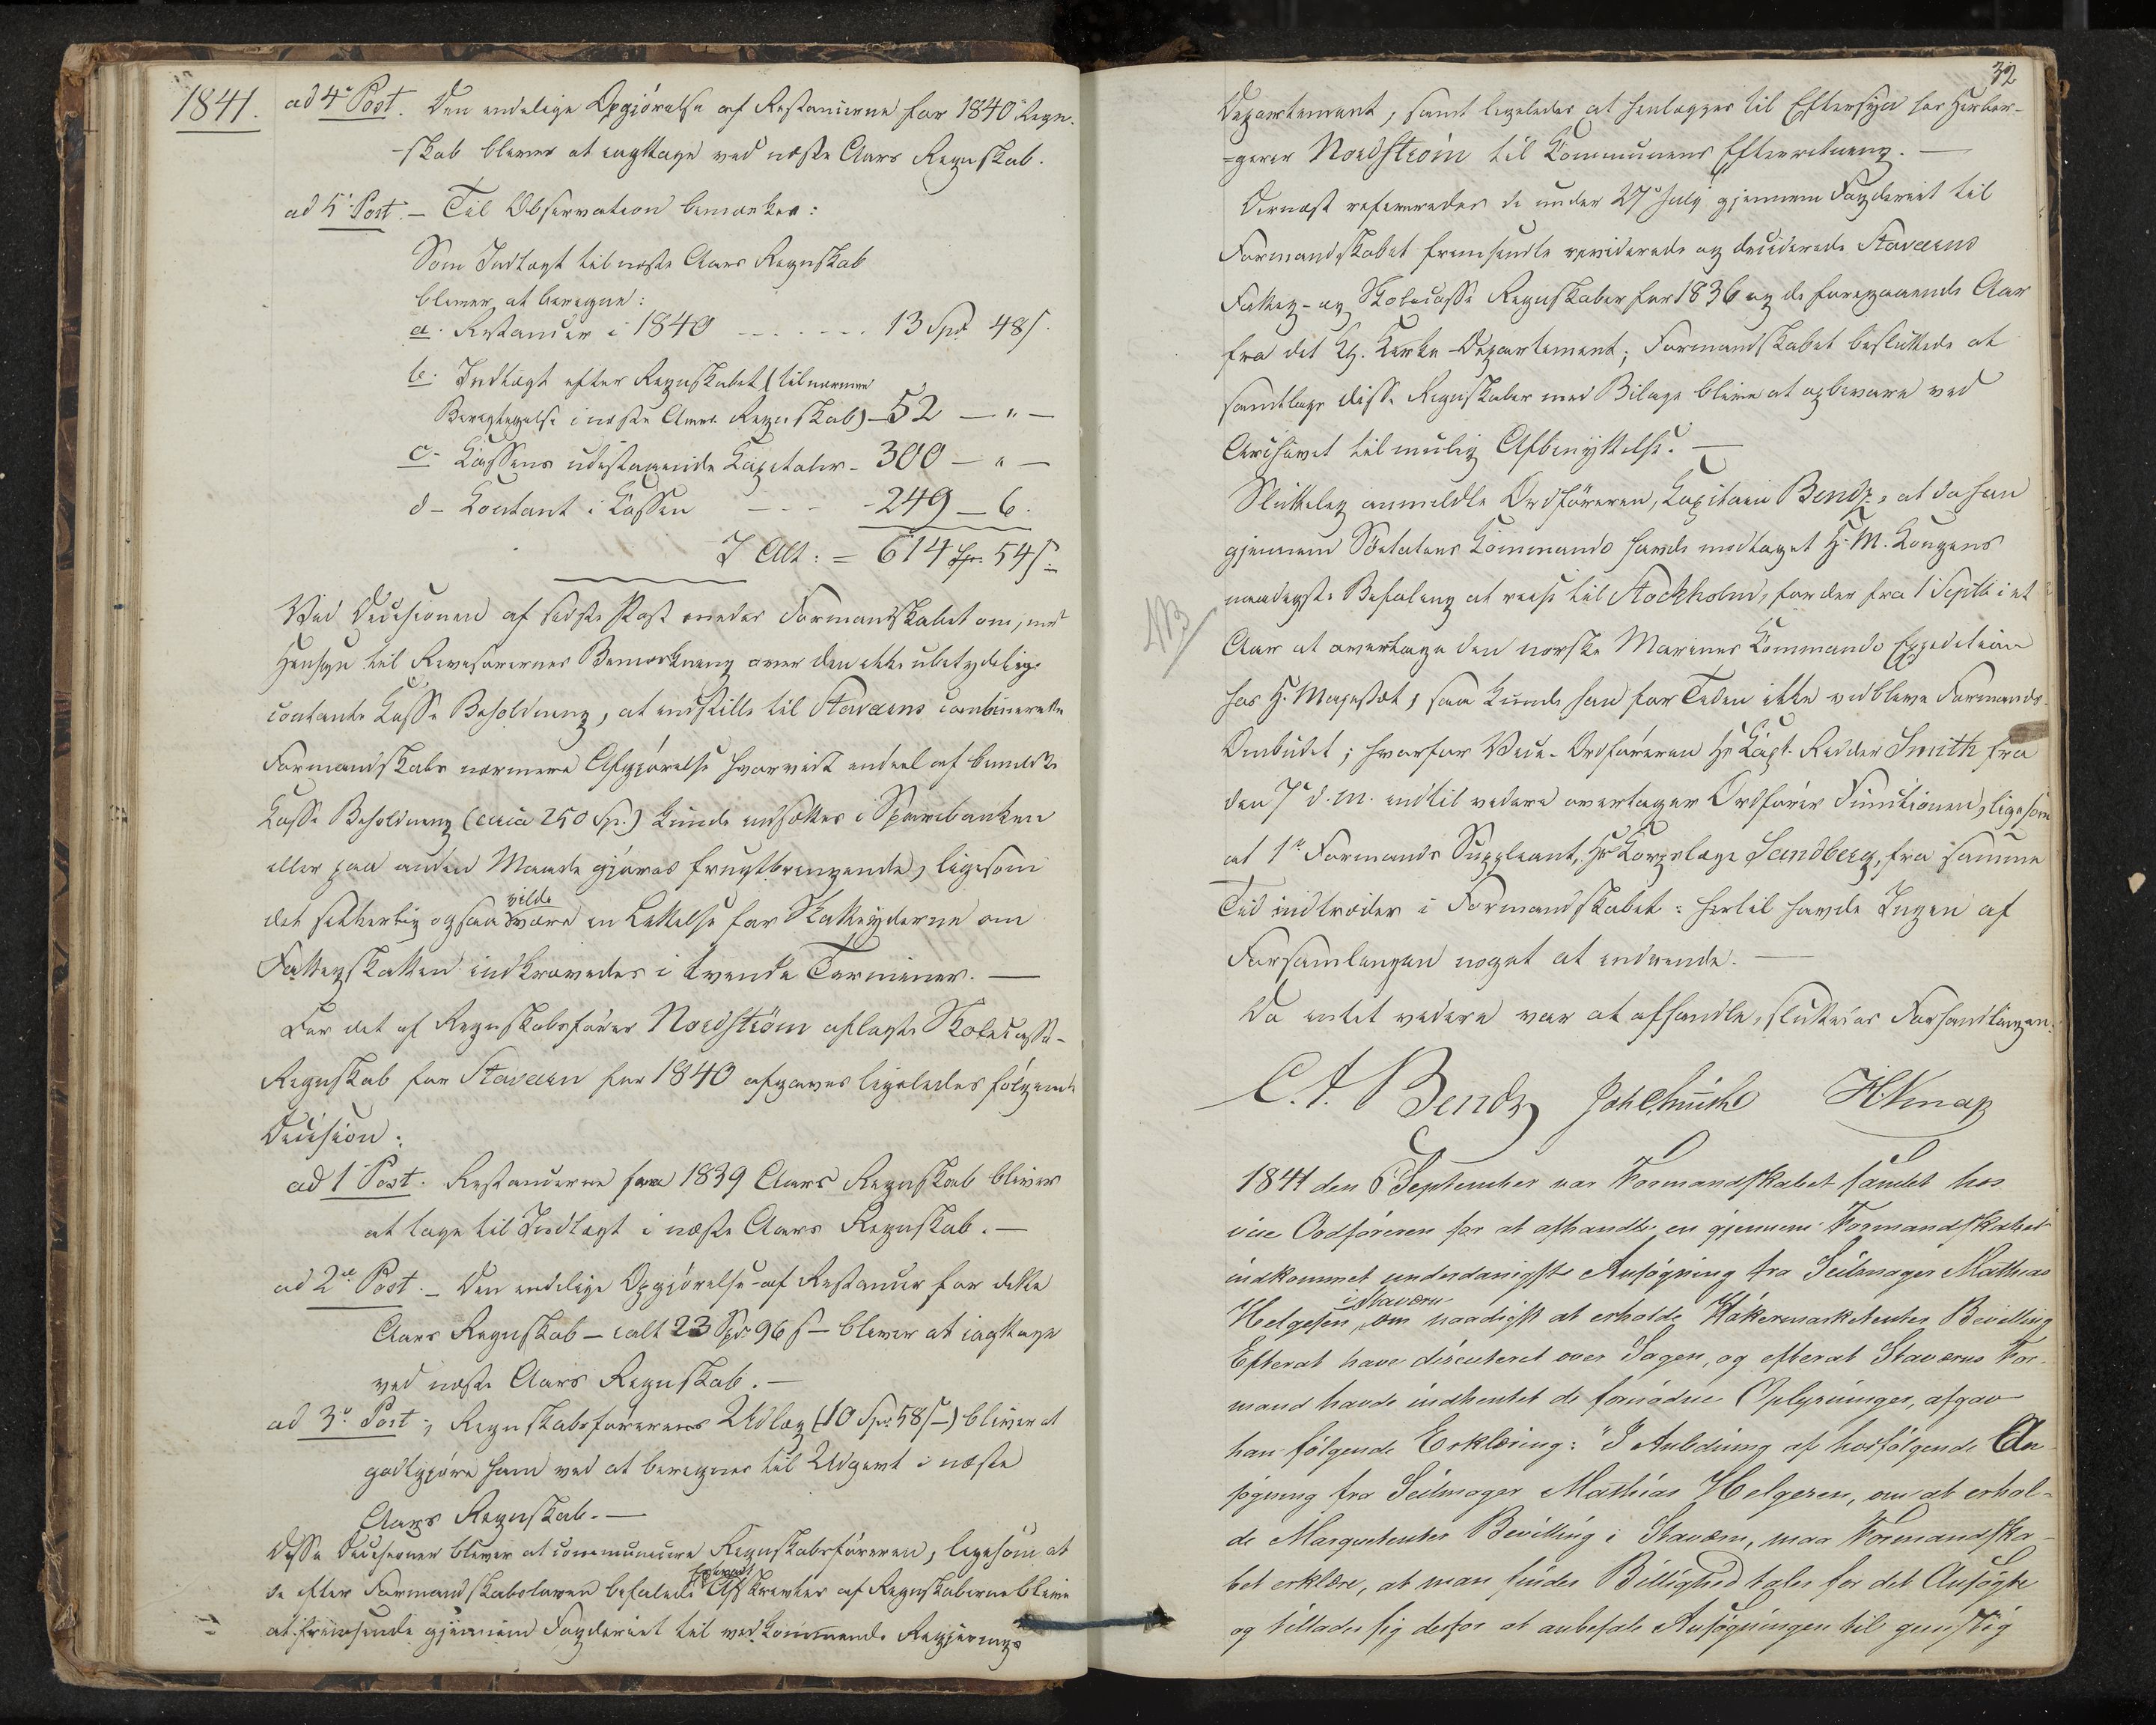 1841. ad 4de Post. Den endelige Opgjörelse af Restancerne for 1840 Regn-
-skab bliver at iagttage ved næste Aars Regnskab.
ad 5' Post. – Til Observation bemærkes:
Som Indtægt til næste Aars Regnskab
bliver at beregne:
a. Restancer i 1840 - - - - - - 13 Spd. 48 s.
b. Indtægt efter Regnskabet (til nærmere
Beregtigelse i næste Aars Regnskab) – 52 – " –
c. Kassens udestaaende Kapitaler – 300 – " –
d – Contant i Kassen - - - - 249 – 6.
I Alt: = 614 Sp. 54 s.
Ved Decisionen af sidste Post enedes Formandskabet om, med
Hensyn til Revisorernes Bemærkning over den ikke ubetydelige
contante Kasse Beholdning, at indstille til Staværns combinerede
Formandskabs nærmere Afgjörelse hvorvidt endeel af bemeldte
Kasse Beholdning (circa 250 Sp.) kunde indsættes i Sparebanken
eller paa anden Maade gjöres frugtbringende, ligesom
det sikkerlig ogsaa vilde være en Lettelse for Skatteyderne om
Fattigskatten indkrævedes i tvende Terminer. —
For det af Regnskabsförer Nordström aflagte Skolecasse-
Regnskab for Staværn for 1840 afgaves ligeledes fölgende
Decision:
ad 1' Post. Restancerne fra 1839 Aars Regnskab bliver
at tage til Indtægt i næste Aars Regnskab. —
ad 2de Post. – Den endelige Opgjörelse af Restancer for dette
Aars Regnskab – ialt 23 Spd. 96 s – bliver at iagttage
ved næste Aars Regnskab. —
ad 3' Post –, Regnskabsförerens Udlæg (10 Spd. 58 s –) bliver at
godtgjöre ham ved at beregnes til Udgivt i næste
Aars Regnskab. —
Disse Decisioner bliver at communicere Regnskabsföreren, ligesom at
de efter Formandskabsloven befalede Afskrivter af Regnskaberne blive
at fremsende gjennem Fogderiet til vedkommende Regjerings
32
Departement, samt ligeledes at henlægges til Eftersyn hos Herber-
=gerer Nordström til Kommunens Efterretning. —
Dernæst refereredes de under 27' July gjennem Fogderiet til
Formandskabet fremsendte reviderede og deciderede Staværns
Fattig- og Skolecasse Regnskaber for 1836 og de foregaaende Aar
fra det Kg. Kirke-Departement; Formandskabet besluttede at
samtlige disse Regnskaber med Bilage blive at opbevare ved
Archivet til mulig Afbenyttelse. —
Slutteligen anmeldte Ordföreren, Kapitain Bendz, at da han
gjennem Söetatens Kommando havde modtaget H. M. Kongens
NB
naadigste Befaling at reise til Stockholm, for der fra 1' Septb i et
Aar at overtage den norske Marines Kommando Expedition
hos H. Majestæt, saa kunde han for Tiden ikke vedblive Formands-
Ombudet; hvorfor Vice-Ordföreren Hr Capt. Ridder Smith fra
den 7' d. M. indtil videre overtager Ordförer Functionen, ligesom
at 1ste Formands Suppleant, Hr Korpslæge Sandberg, fra samme
Tid indtræder i Formandskabet: hertil havde Ingen af
Forsamlingen noget at indvende. —
Da intet videre var at afhandle, sluttedes Forhandlingen.
C. A. Bendz Joh Smith H Knap
1841 den 6 September var Formandskabet samlet hos
vice Ordföreren for at afhandle en gjennem Formandskabet
indkommet underdanigste Ansögning fra Seilmager Mathias
Helgesen i Staværn, om naadigst at erholde Höker-marketenter Bevilling
Efterat have discuteret over Sagen, og efterat Staværns For-
mand havde indhentet de fornödne Oplysninger, afgav
han fölgende Erklæring: "I Anledning af hosfölgende An-
sögning fra Seilmager Mathias Helgesen, om at erhol-
de Marquetenter Bevilling i Staværn, maa Formandska-
bet erklære, at man finder Billighed taler for det Ansögte
og tillader sig derfor at anbefale Ansögningen til gunstig